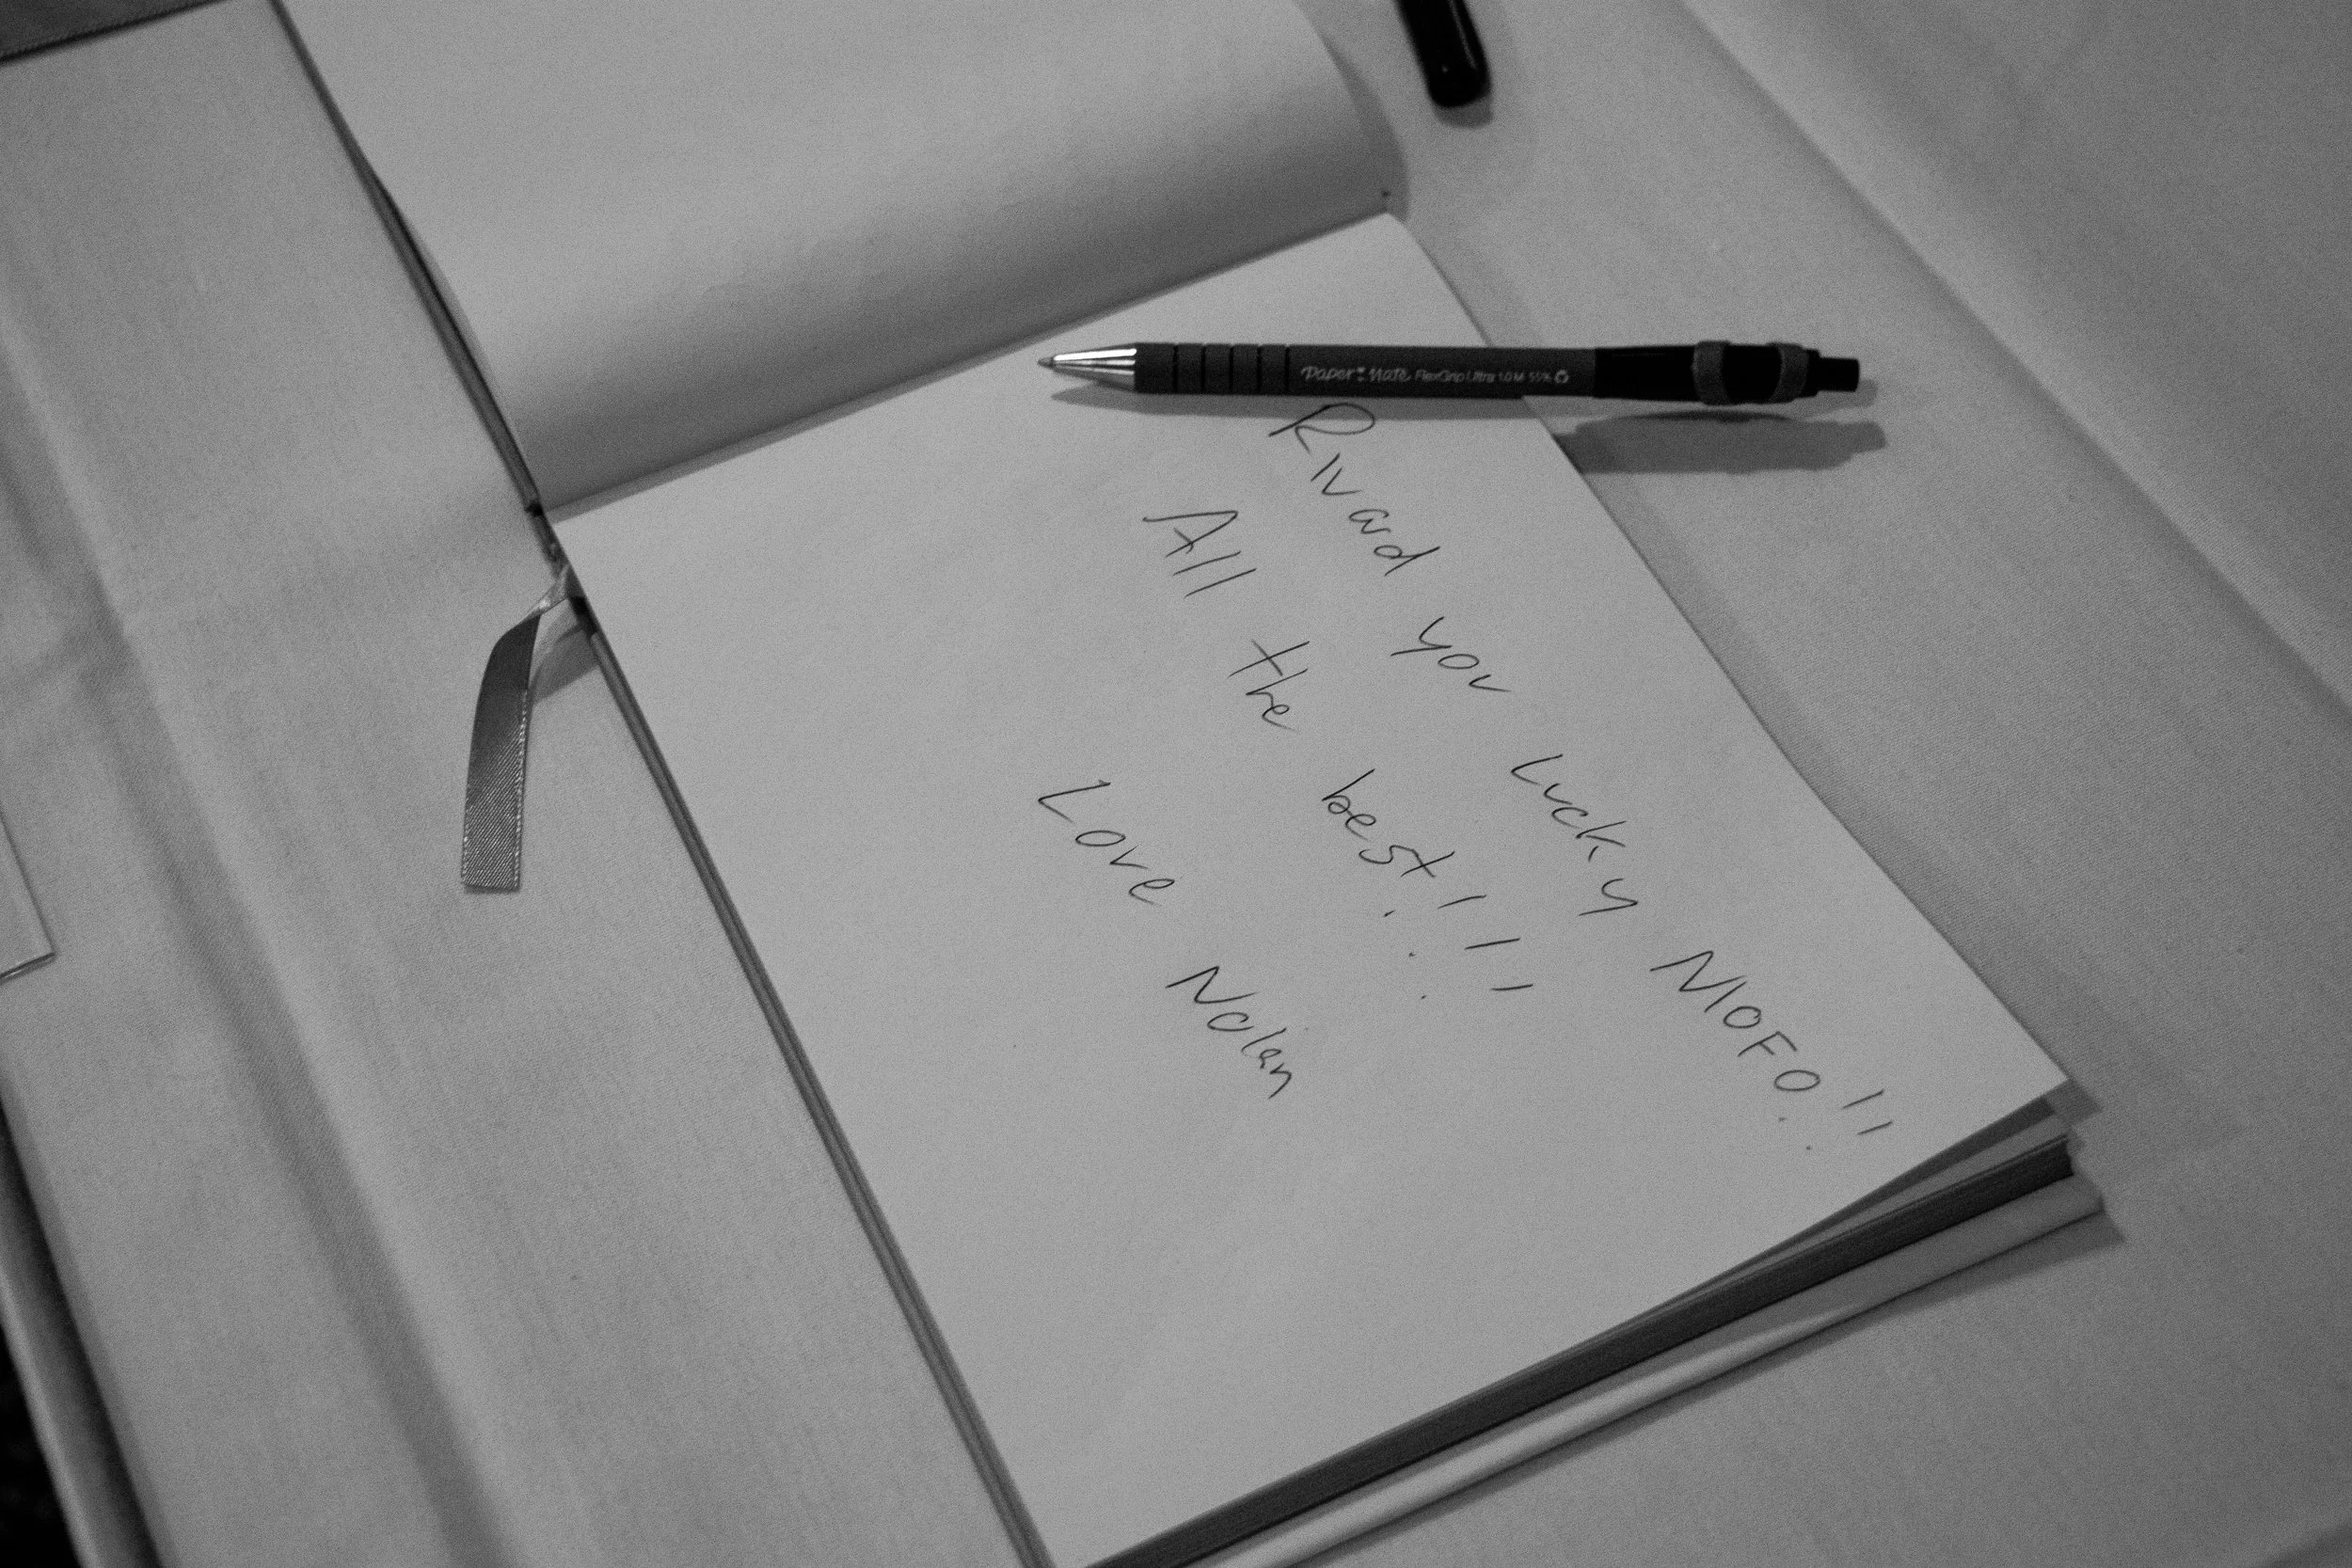 Paper:Mate FlexGrip Ultra 1.0 M 55%
Rivard you lucky MOFO!!
All the best!!!
Love Nolan